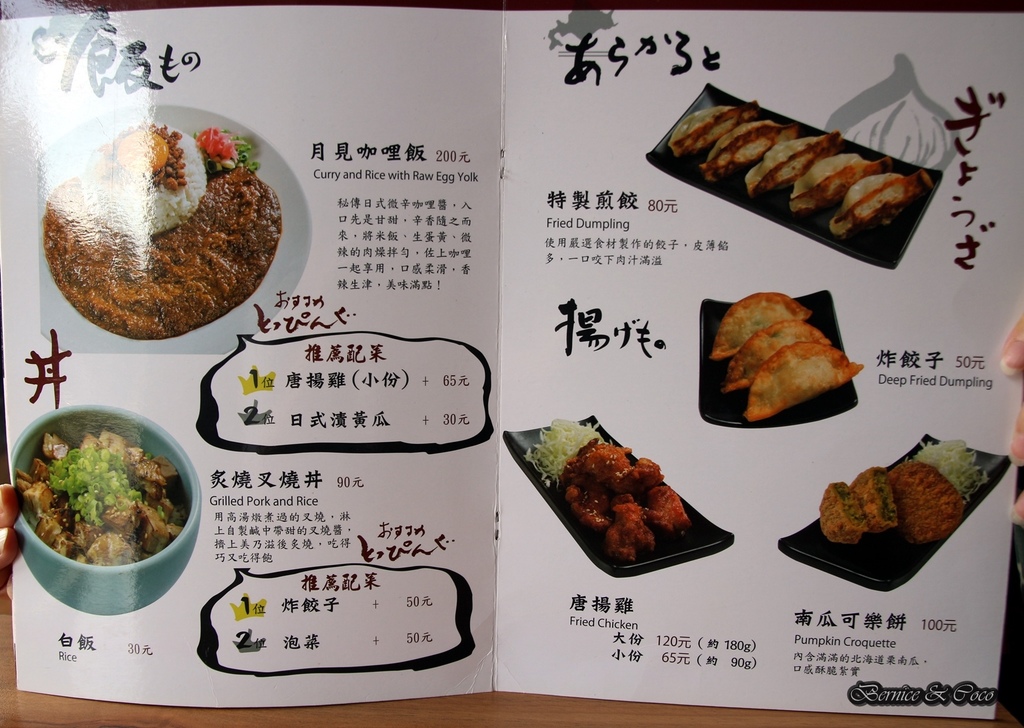 ご飯もの
月見咖哩飯 200元
Curry and Rice with Raw Egg Yolk
秘傳日式微辛咖哩醬，入
口先是甘甜，辛香隨之而
來，將米飯、生蛋黃、微
辣的肉燥拌勻，佐上咖哩
一起享用，口感柔滑，香
辣生津，美味滿點！
おすすめ
とっぴんぐ
推薦配菜
1位 唐揚雞(小份) + 65元
2位 日式漬黃瓜 + 30元
丼
炙燒叉燒丼 90元
Grilled Pork and Rice
用高湯燉煮過的叉燒，淋
上自製鹹中帶甜的叉燒醬，
擠上美乃滋後炙燒，吃得
巧又吃得飽
おすすめ
とっぴんぐ
推薦配菜
1位 炸餃子 + 50元
2位 泡菜 + 50元
白飯 30元
Rice
あらかると
ぎょうざ
特製煎餃 80元
Fried Dumpling
使用嚴選食材製作的餃子，皮薄餡
多，一口咬下肉汁滿溢
揚げもの
炸餃子 50元
Deep Fried Dumpling
唐揚雞
Fried Chicken
大份 120元 (約180g)
小份 65元 (約 90g)
南瓜可樂餅 100元
Pumpkin Croquette
內含滿滿的北海道栗南瓜，
口感酥脆紮實
Bernice & Coco